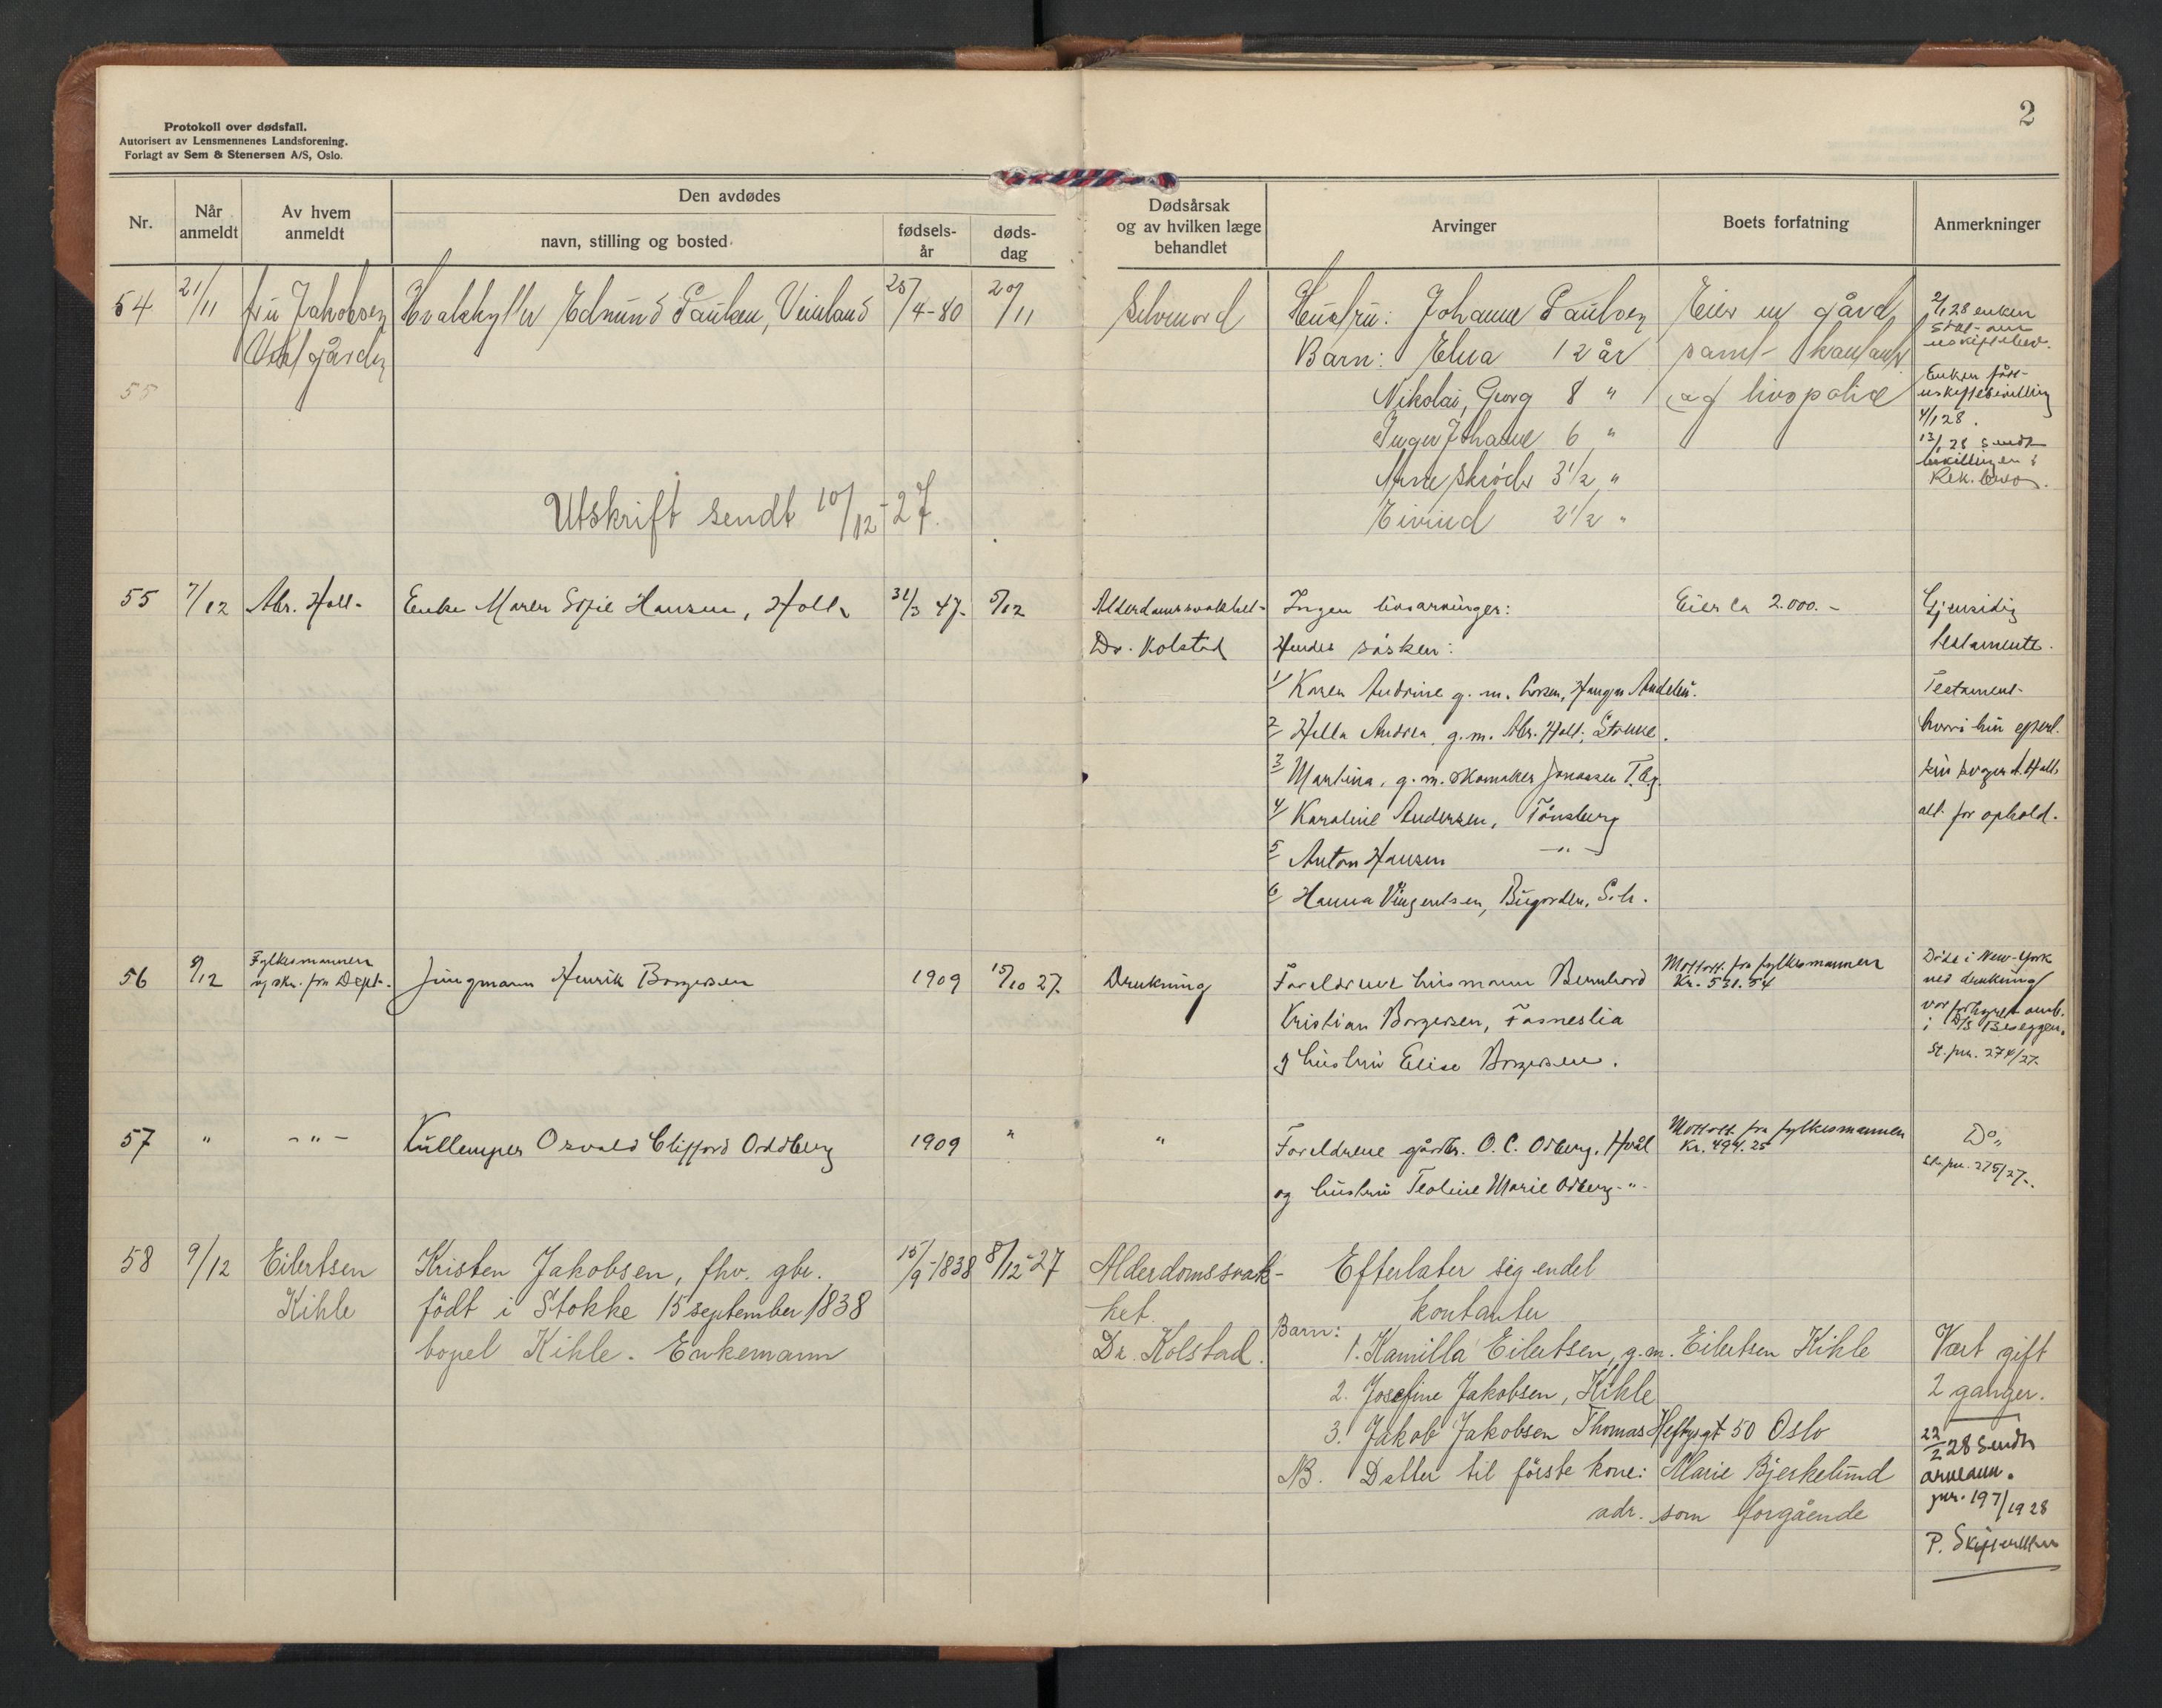 2
Protokoll over dødsfall.
Autorisert av Lensmennenes Landsforening.
Forlagt av Sem & Stenersen A/S, Oslo.
Nr.
Når anmeldt
Av hvem anmeldt
Den avdødes
navn, stilling og bosted
fødsels-år
døds-dag
Dødsårsak og av hvilken læge behandlet
Arvinger
Boets forfatning
Anmerkninger
54 21/11 fru Jakobsen Hvalskytter Edmund Paulsen, 25/4-80 20/11 Selvmord Hustru: Johanne Paulsen Eier en gård 2/1 28 enken
Barn: Elna 12 år samt
55 Nikolai, Georg 8 " og livspolice Enken
Inger Johanne 6 " 4/1 28.
13/1 28 sendt
Arne 3 1/2 "
Utskrift sendt 10/12-27. Eivind 2 1/2 "
55 7/12 Abr. Holt Enke Maren Sofie Hansen, Holt 31/3 47. 5/12 Alderdomssvakhet- Ingen livsarvinger: Eier ca 2.000.- Gjensidig
Dr. Kolstad Hendes søsken: testamente.
1/ Karen Andrine g. m. Testament-
2/ Andrea g. m. Abr. Holt,
3/ Martina, g. m. skomaker Jonassen Tbg.
4/ Karoline Andersen, Tønsberg for ophold.
5/ Anton Hansen -"-
6/ Hanna Vingentsen,
56 9/12 Fylkesmannen Jungmann Henrik Borgersen 1909 15/10 27. Drukning Foreldrene husmann Bernhard Mottatt fra fylkesmannen Døde i New-York
og skr. fra Dept. Kr. 531.54 ved drukning
Kristian Borgersen, Fosneslia var forhyret omb.
i D/S Besseggen.
og hustru Elise Borgersen. 274/27.
57 " -"- Kullemper Osvald Clifford Oddberg 1909 " " Foreldrene gårdbr. O. C. Odberg, Hvål Mottatt fra fylkesmannen Do
Kr. 494.25
og hustru Teoline Marie Odberg -"- 275/27.
58 9/12 Eilertsen Kristen Jakobsen, fhv. gbr. 15/9-1838 8/12-27 Alderdomssvak- Efterlater sig endel
Kihle født i Stokke 15 september 1838 het. kontanter
bopel Kihle. Enkemann Dr. Kolstad. Barn: 1. Kamilla Eilertsen, g.m. Eilertsen Kihle Vært gift
2. Josefine Jakobsen, Kihle 2 ganger.
3. Jakob Jakobsen Thomas Heftysgt 50 Oslo 22/2 28 sendt
NB. Datter til første kone: Marie Bjerkelund
adr. som forgående jnr. 197/1928
P.